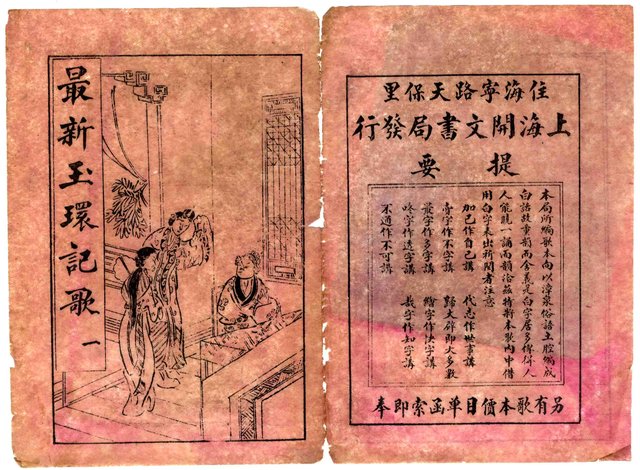 最新玉環記歌 一
住海寧路天保里
上海開文書局發行
提要
本局所編歌本向以漳泉俗語土腔編成
白話故重韻而舍義凡白字居多人
人能競一誦而韻洽茲特將本歌內中借
用白字表出祈閱者注意
加己作自己講 代志作世事講
字作不字講 大辟即大多數
字作多字講 緊字作快字講
字作透字講 哉字作知字講
不通作不可講
另有歌本價目單函索即奉